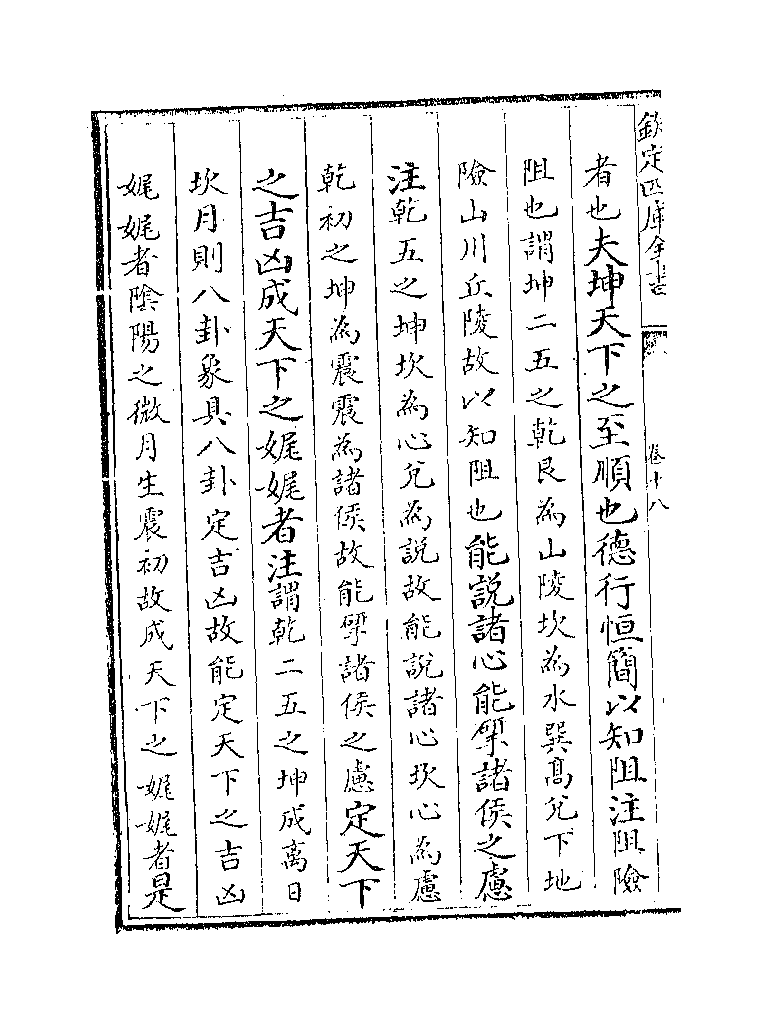 欽定四庫全書
卷十八
者也夫坤天下之至順也德行恒簡以知阻注阻險
阻也謂坤二五之乾艮為山陵坎為水巽高兌下地
險山川丘陵故以知阻也能說諸心能揅諸侯之慮
注乾五之坤坎為心兌為說故能說諸心坎心為慮
乾初之坤為震震為諸侯故能揅諸侯之慮定天下
之吉凶成天下之娓娓者注謂乾二五之坤成离日
坎月則八卦象具八卦定吉凶故能定天下之吉凶
娓娓者陰陽之微月生震初故成天下之娓娓者是